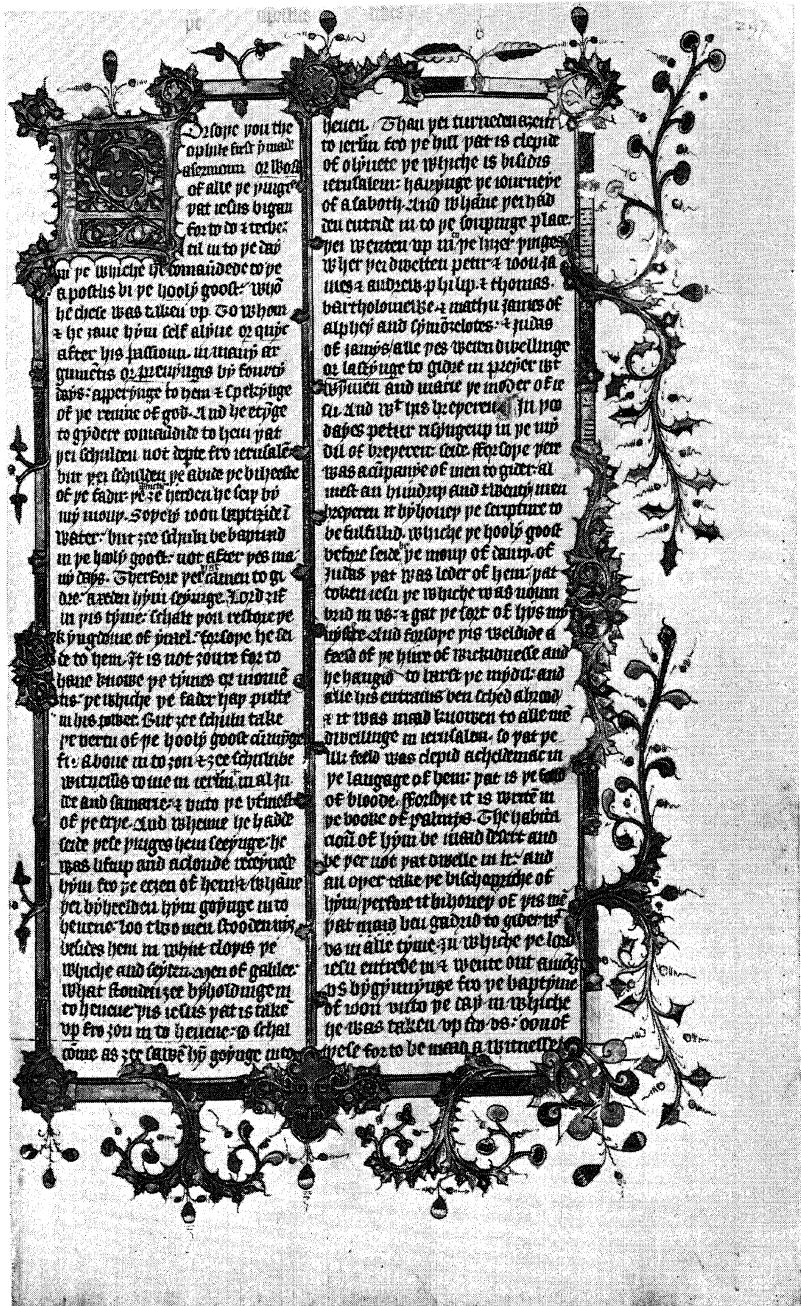 þe apostlis dedes
Orsoþe þou the
ophile first y made
a sermoun or word
of alle þe þinges
þat iesus bigan
for to do & teche·
til in to þe day
in þe whiche he comaūdede to þe
apostlis bi þe hooly goost· whō
he chese was taken vp· To whom
& he ȝaue hym self alyue or quyc
after his passioun· in many ar
gumētis or preuyngis by fourty
days· apperynge to hem & spekynge
of þe rewme of god· And he etynge
to gydere comaūdide to hem þat
þei schulden not depte fro ierusalē·
but þei schulden þe abide þe biheeste
of þe fadir· þe whiche ȝe herden he seiþ by
my mouþ· Soþely ioon baptiside ī
water· but ȝee schuln be baptisid
in þe hooly goost· not after þes ma
ny days· Therfore þei camen to gi
dre· axeden hym seyinge· Lord ȝif
in þis tyme· schalt þou restore þe
kyngdome of ysrael· forsoþe he sei
de to hem· It is not ȝoure for to
haue knowe þe tymes or momē
tis· þe whiche þe fader haþ putte
in his power· But ȝee schuln take
þe vertu of þe hooly goost cūmynge
fro aboue in to ȝou & ȝee schuln be
witnessis to me in ierlm· in al iu
dee and samarie· & vnto þe vtmest
of þe erþe· And whenne he hadde
seide þese þinges hem seeynge· he
was liftup and a cloude receyuede
hym fro þe eeȝen of hem· & whāne
þei byheelden hym goynge in to
heuene· loo two men stooden nyȝ
besides hem in whijt cloþis þe
whiche and seyden· Men of galilee·
what stonden ȝee byholdinge in
to heuene· þis iesus þat is takē
vp fro ȝou in to heuene· so schal
come as ȝee sawē hȳ goynge into
heuen· Than þei turneden aȝein
to ierlm fro þe hill þat is clepide
of olyuete þe whiche is bisidis
ierusalem· hauynge þe iourneye
of a saboth· And whāne þei had
den entride in to þe soupinge place·
þei wenten vp in to þe hiȝer þinges
wher þei dwelten petir & ioon ja
mes & andrew· philip & thomas·
bartholomewe & mathu james of
alphey and symō zelotes· & judas
of jamys/ alle þes weren dwellinge
or lastynge to gidre in preyer wt
wymen and marie þe moder of ie
su· And wt his breþeren· In þoo
dayes petur risynge up in þe my
dil of breþeren· seide· fforsoþe þere
was a cūpanye of men to gider· al
mest an hundrid and twenty men
breþeren it byhoueþ þe scripture to
be fulfillid· whiche þe hooly goost
before seide bi þe mouþ of dauiþ· of
judas þat was leder of hem· þat
token iesu þe whiche was noum
brid in vs· & gat þe sort of hys my
nystre· And forsoþe þis weldide a
feeld of þe hire of wickidnesse and
he hangid to barst þe mydil· and
alle his entrailis ben sched abrood
& it was maad knowen to alle mē
dwellinge in ierusalen· so þat þe
ilk feeld was clepid acheldemac in
þe langage of hem· þat is þe feeld
of bloode· fforsoþe it is wrete in
þe booke of psalmys· The habita
cioū of hym be maad desert and
be þer not þat dwelle in it· and
an oþer take þe bischopriche of
hym/ þerfore it bihoueþ of þis mē
þat maid ben gadrid to gider wt
vs in alle tyme· in whiche þe lord
iesu entrede in & wente out amōg
vs bygynnynge fro þe baptyme
of ioon vnto þe day in whiche
he was taken vp fro vs· oon of
þese for to be maad a witnesse